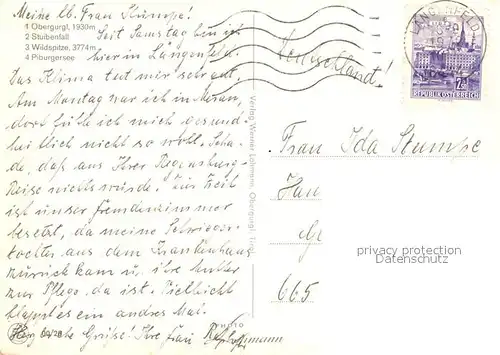 Meine lb. Frau Stumpe!
1 Obergurgl, 1930m
2 Stuibenfall
3 Wildspitze, 3774m
4 Piburgersee
Seit Samstag bin ich
hier in Längenfeld.
Das Klima tut mir sehr gut.
Am Montag war ich in Meran,
dort fühlte ich mich gesund-
heitlich nicht so wohl. Scha-
de, daß aus Ihrer Regensburg-
Reise nichts wurde. Zur Zeit
ist unser Fremdenzimmer
besetzt, da meine Schwieger-
tochter aus dem Krankenhaus
zurück kam u. ihre Mutter
zur Pflege da ist. Vielleicht
klappt es ein andres Mal.
Herzliche Grüße! Ihre Frau
Verlag Werner Lohmann, Obergurgl, Tirol
PHOTO
Lohmann
LÄNGENFELD
REPUBLIK ÖSTERREICH
Deutschland!
Frau Ida Stumpe
665
privacy protection
Datenschutz